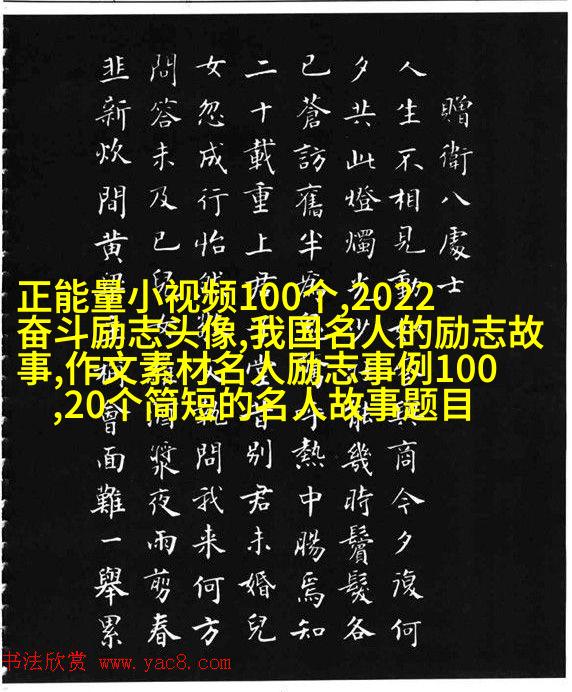 正能量小视频100个,2022
奋斗励志头像,我国名人的励志故
事,作文素材名人励志事例100
,20个简短的名人故事题目
贈衛八處士
人生不相見動與商今夕復何
夕共此燈燭光少能幾時鬢髮各
已蒼訪舊半熱中腸焉知
二十載重上君堂昔別君未婚兒
女忽成行怡然問我来何方
問答未及已兒女酒漿夜雨剪春
韭新炊間黄會面難一舉累
书法欣赏 www.yac8.com